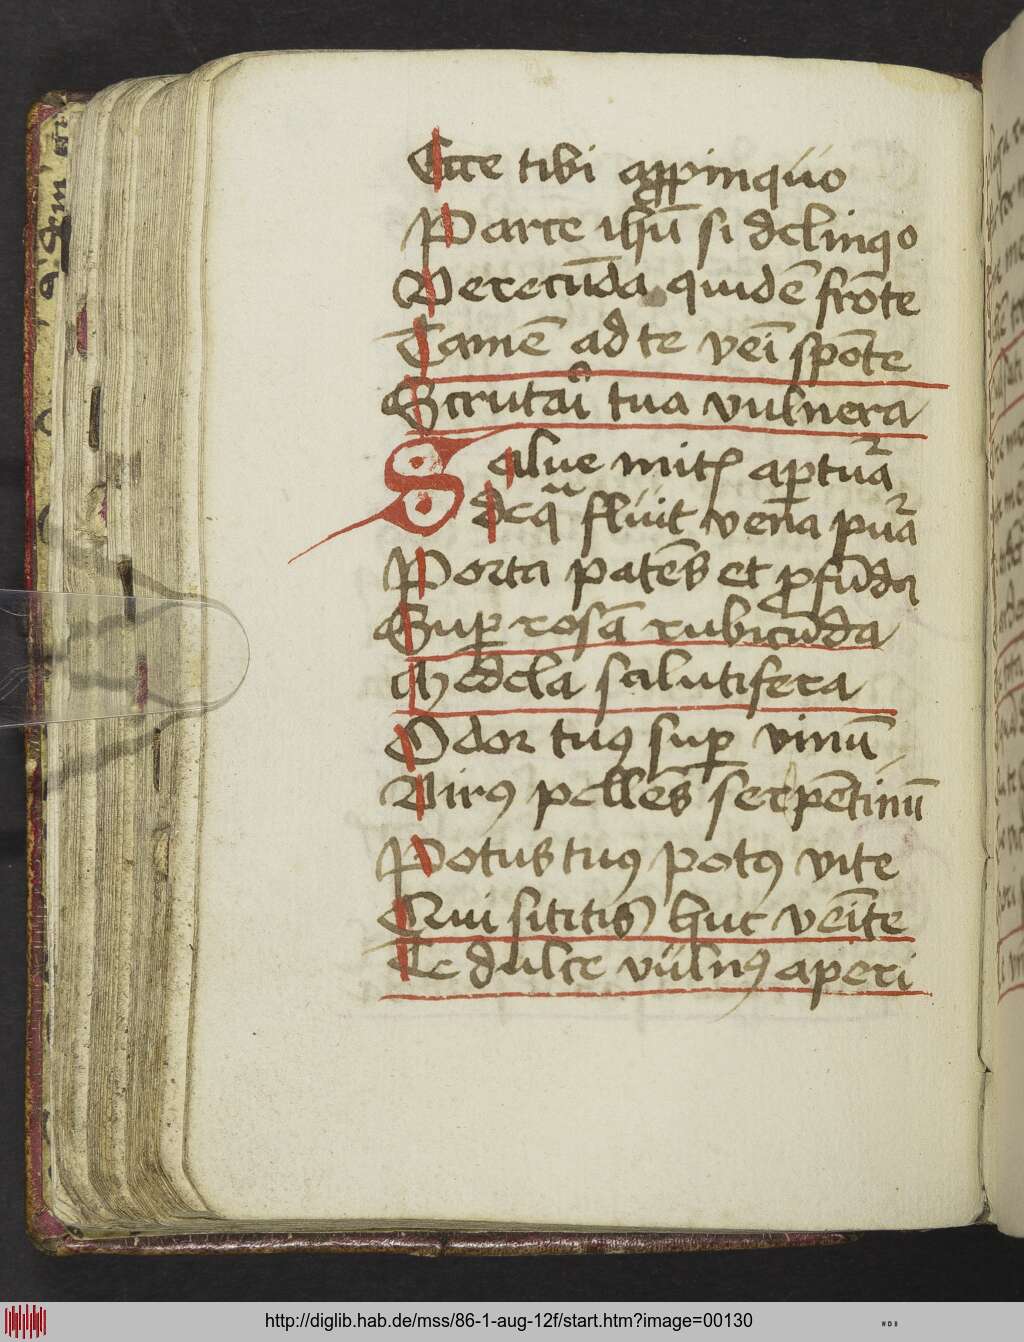 Ecce tibi appinquo
Parce ihū si delinqo
Verecūda quidē frōte
Tamē ad te vēi spōte
Scrutai tua vulnera
Salue mitis apertura
De qua fluit vena pura
Porta patēs et profūda
Super rosā rubicūda
Medela salutifera
Odor tuus super vinū
Virus pellēs serpētinū
Potus tuus potus vite
Qui sititis huc vēite
Te dulce vulnus aperi
http://diglib.hab.de/mss/86-1-aug-12f/start.htm?image=00130